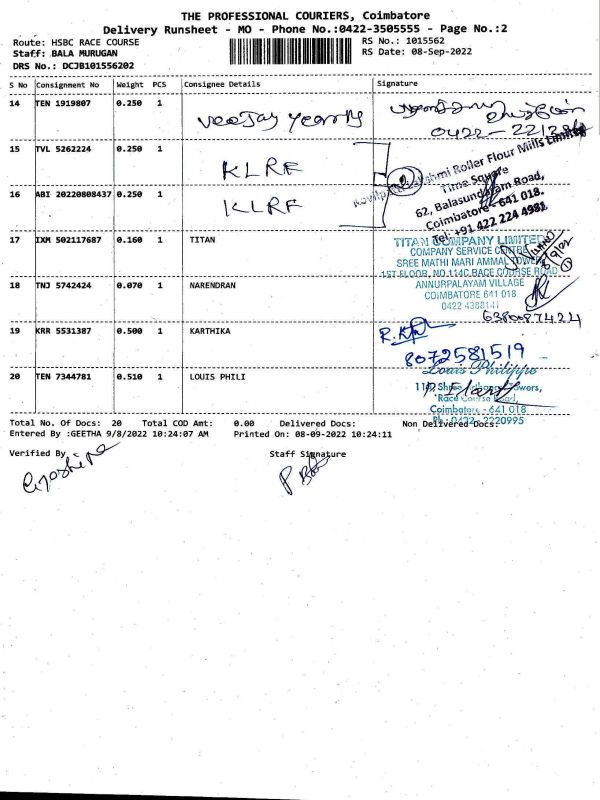 THE PROFESSIONAL COURIERS, Coimbatore
Delivery Runsheet - MO - Phone No.:0422-3505555 - Page No.:2
Route: HSBC RACE COURSE
Staff: BALA MURUGAN
DRS No.: DCJB101556202
RS No.: 1015562
RS Date: 08-Sep-2022
S No Consignment No Weight PCS Consignee Details Signature
14 TEN 1919807 0.250 1
15 TVL 5262224 0.250 1 KLRF
16 ABI 20220808437 0.250 1 KLRF
Roller Flour Mills Limited
Time Square
62, Balasundaram Road,
Coimbatore - 641 018.
Tel: +91 422 224 4981
17 IXM 502117687 0.160 1 TITAN
TITAN COMPANY LIMITED
COMPANY SERVICE CENTRE
SREE MATHI MARI AMMAL TOWER
1ST FLOOR, NO.114C,RACE COURSE ROAD
ANNURPALAYAM VILLAGE
COIMBATORE 641 018
0422 4388141
18 TNJ 5742424 0.070 1 NARENDRAN
6380087424
19 KRR 5531387 0.500 1 KARTHIKA
8072581519
20 TEN 7344781 0.510 1 LOUIS PHILI
Louis Philippe
Race Course Road,
Coimbatore - 641 018
Ph: 0422 - 2220995
Total No. Of Docs: 20 Total COD Amt: 0.00 Delivered Docs: Non Delivered Docs:
Entered By :GEETHA 9/8/2022 10:24:07 AM Printed On: 08-09-2022 10:24:11
Verified By Staff Signature